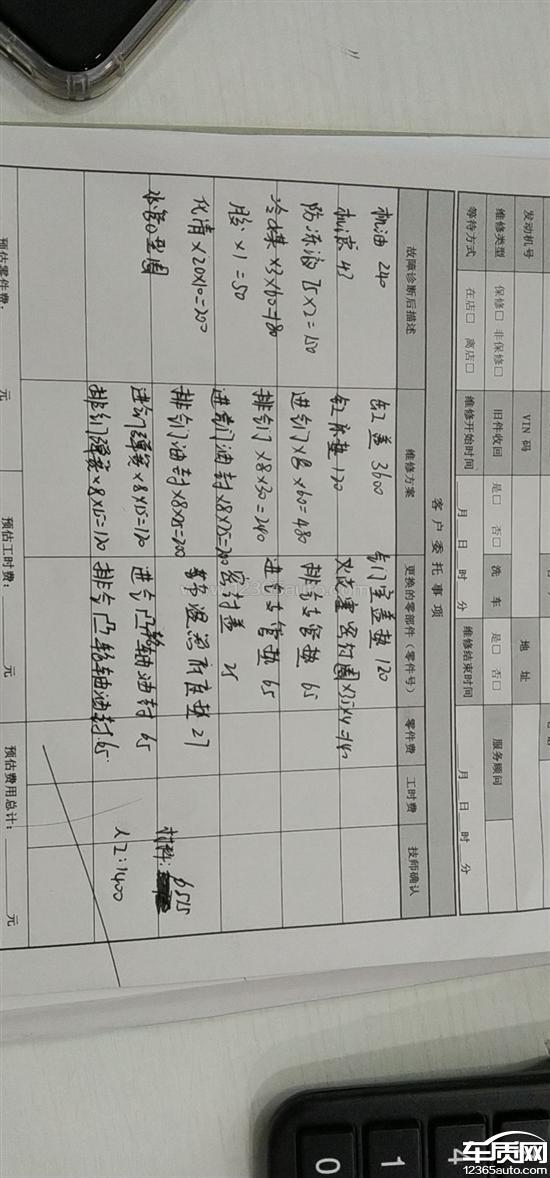 发动机号 VIN 码 地 址
维修类型 保修□ 非保修□ 旧件收回 是□ 否□ 洗 车 是□ 否□ 服务顾问
等待方式 在店□ 离店□ 维修开始时间 月 日 时 分 维修结束时间 月 日 时 分
客 户 委 托 事 项
故障诊断后描述 维修方案 更换的零部件（零件号） 零件费 工时费 技师确认
机油 240 缸盖 3600 气门室盖垫 120
机滤 43 缸床垫 120 火花塞密封圈×35×4=140
防冻液 75×2=150 进气门×8×60=480 排气支管垫 65
冷媒×3×60=180 排气门×8×30=240 进气支管垫 65
胶×1=50 进气门油封×8×25=200 密封盖 25
化清×20×10=200 排气门油封×8×25=200 节温器底座垫 27
水管O型圈 进气门弹簧×8×15=120 进气凸轮轴油封 65
排气门弹簧×8×15=120 排气凸轮轴油封 65
材料: 6515
人工:1400
预估零件费: 元 预估工时费: 元 预估费用总计: 元
www.12365auto.com
0
1
4
车质网
12365auto.com